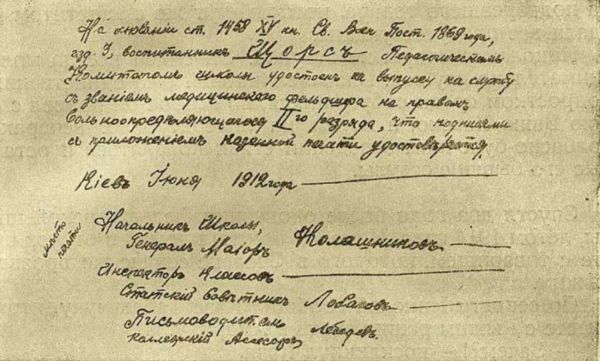 На основанiи ст. 1458 XV кн. Св. Воен Пост. 1869 года,
изд. I, воспитанникъ Щорсъ Педагогическимъ
Комитетомъ школы удостоенъ къ выпуску на службу
съ званiемъ медицинскаго фельдшера на правахъ
вольноопредѣляющагося II го разряда, что подписями
съ приложенiемъ казенной печати удостовѣряется.
Кiевъ Iюня 1912 года
мѣсто
печати
Начальникъ Школы,
Генералъ Маiоръ Калашниковъ
Инспекторъ Классовъ
Статскiй Совѣтникъ Лобановъ
Письмоводитель
Коллежскiй Асессоръ Лебедевъ